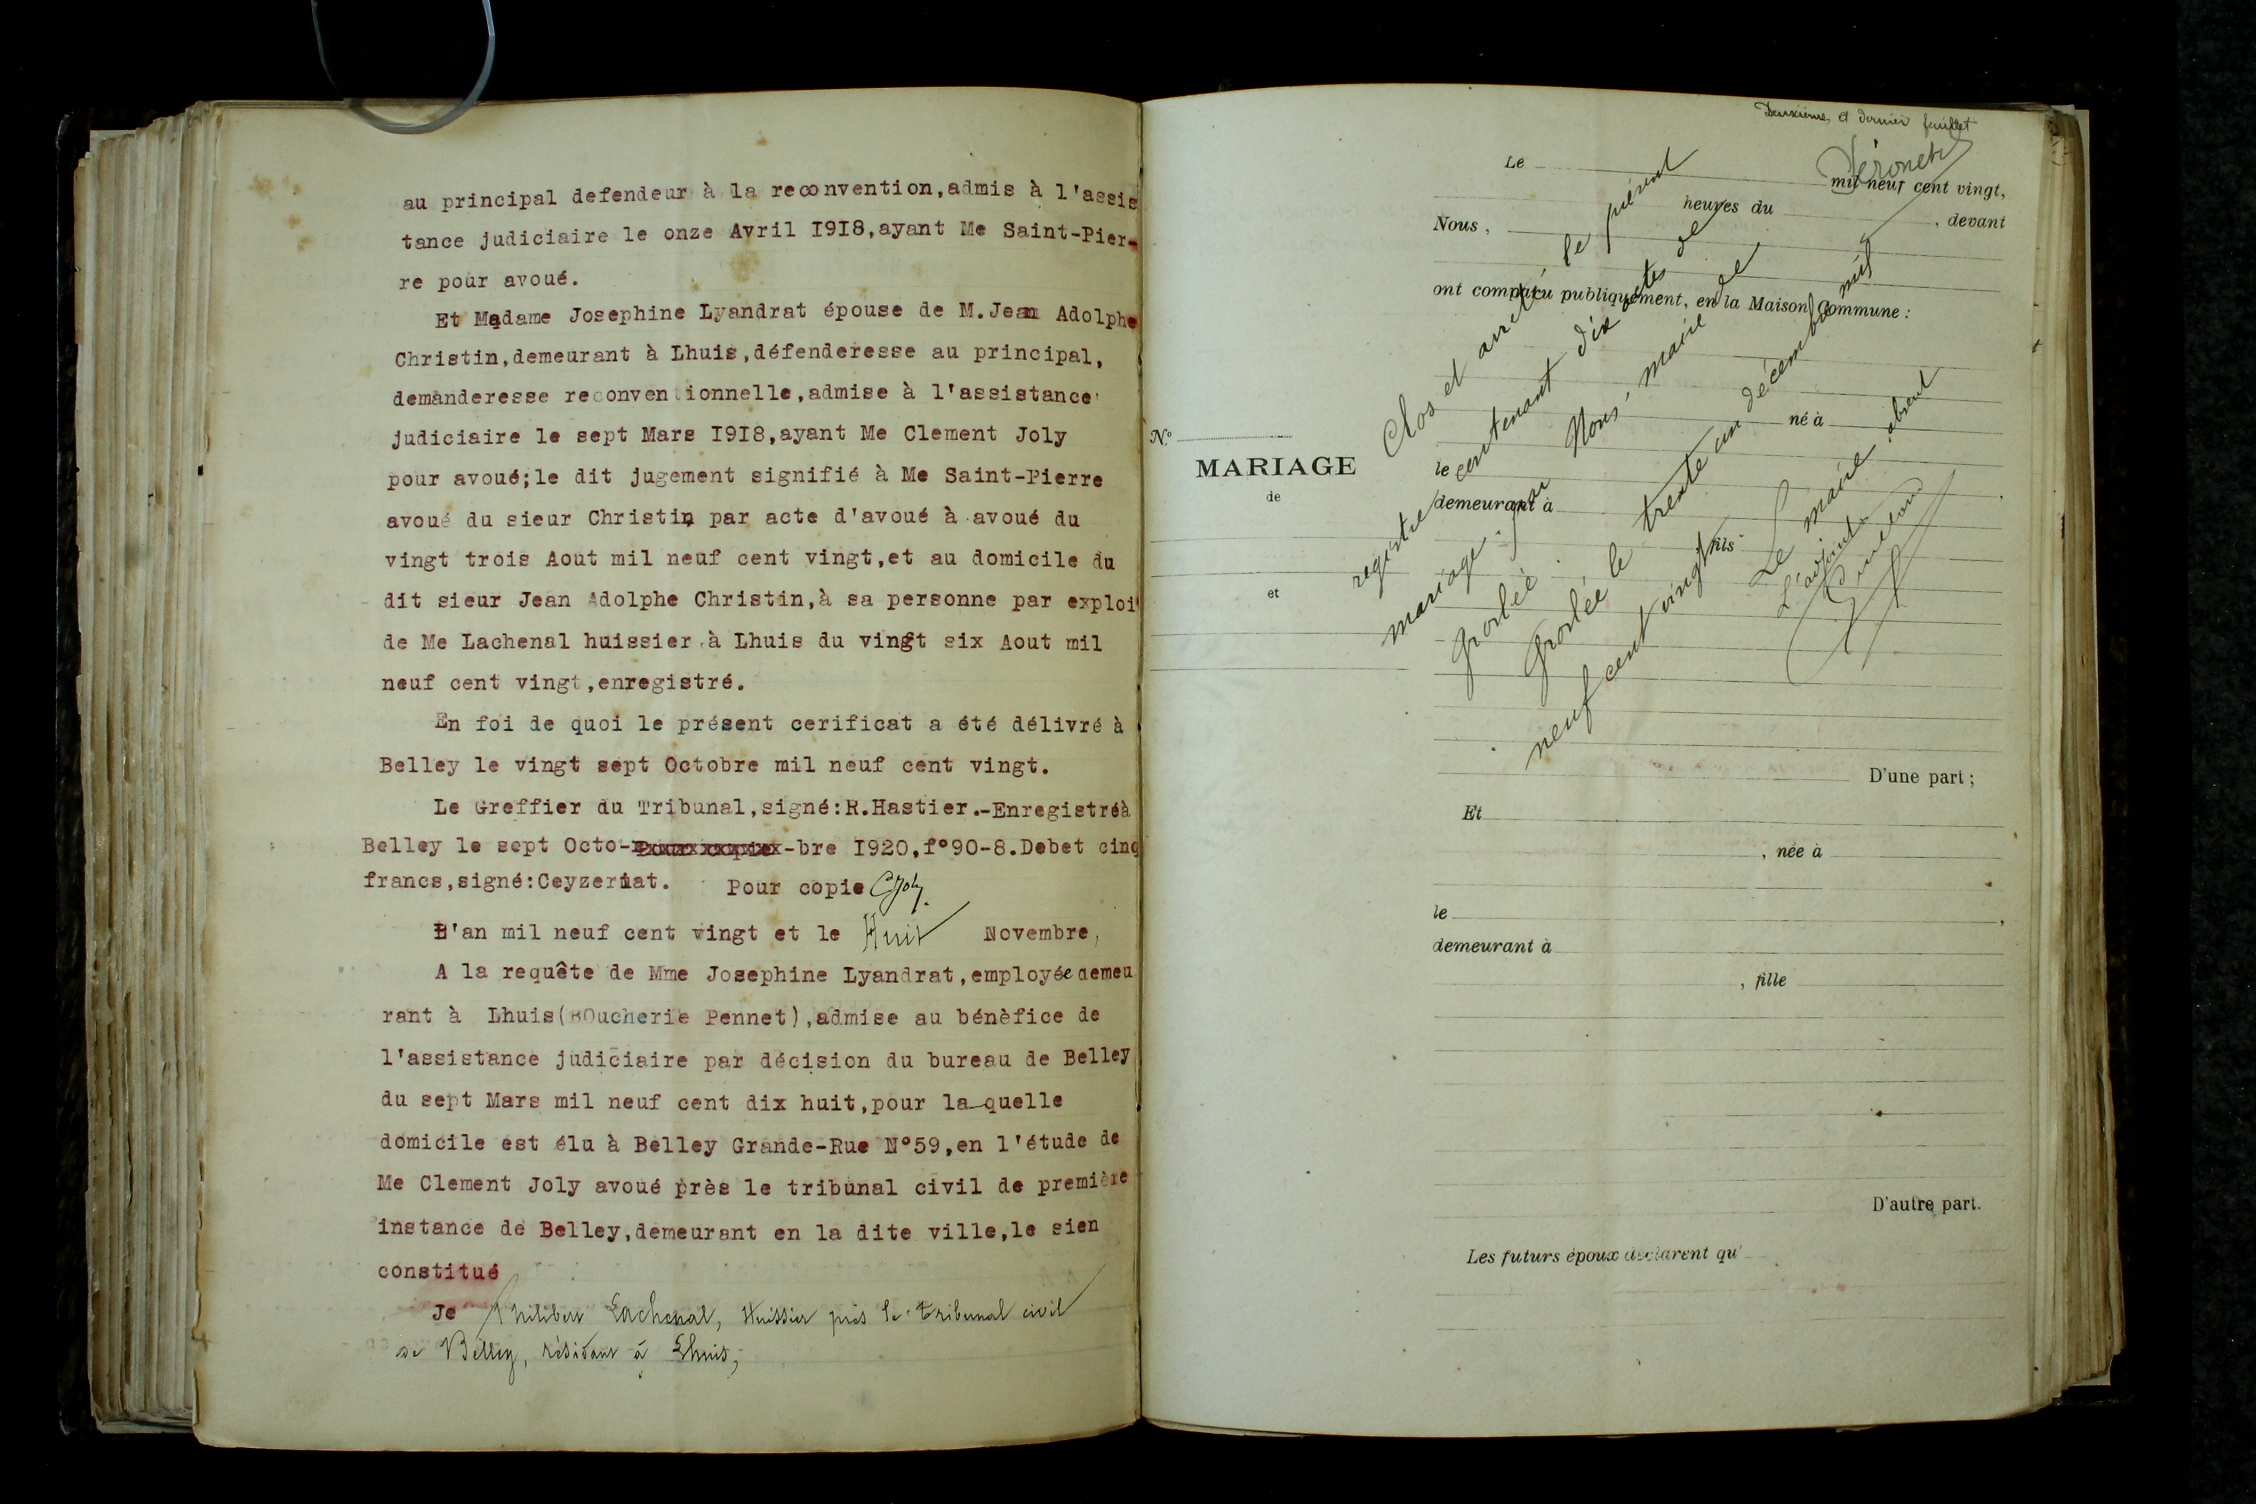 au principal defendeur à la reconvention,admis à l'assis
tance judiciaire le onze Avril I9I8,ayant Me Saint-Pier-
re pour avoué.
Et Madame Josephine Lyandrat épouse de M.Jean Adolphe
Christin,demeurant à Lhuis,défenderesse au principal,
demanderesse reconventionnelle,admise à l'assistance
judiciaire le sept Mars I9I8,ayant Me Clement Joly
pour avoué;le dit jugement signifié à Me Saint-Pierre
avoué du sieur Christin par acte d'avoué à avoué du
vingt trois Aout mil neuf cent vingt,et au domicile du
dit sieur Jean Adolphe Christin,à sa personne par exploi
de Me Lachenal huissier à Lhuis du vingt six Aout mil
neuf cent vingt,enregistré.
En foi de quoi le présent cerificat a été délivré à
Belley le vingt sept Octobre mil neuf cent vingt.
Le Greffier du Tribunal,signé:R.Hastier.-Enregistréà
Belley le sept Octo- -bre I920,f°90-8.Debet cinq
francs,signé:Ceyzeriat. Pour copie CJoly
L'an mil neuf cent vingt et le Huit Novembre,
A la requête de Mme Josephine Lyandrat,employée demeu
rant à Lhuis(BOucherie Pennet),admise au bénèfice de
l'assistance judiciaire par décision du bureau de Belley
du sept Mars mil neuf cent dix huit,pour la quelle
domicile est élu à Belley Grande-Rue N°59,en l'étude de
Me Clement Joly avoué près le tribunal civil de première
instance de Belley,demeurant en la dite ville,le sien
constitué
Je Philibert Lachenal, Huissier près le Tribunal civil
de Belley, résidant à Lhuis,
Deuxième et dernier feuillet
Le mil neuf cent vingt,
heures du , devant
Nous ,
ont comparu publiquement, en la Maison Commune :
N.º
MARIAGE
de
et
né à
le
demeurant à
fils
Clos et arrêté le présent
registre contenant dix actes de
mariage par Nous, maire de
Groslée.
Groslée le trente un décembre mil
neuf cent vingt
Le maire absent
L'adjoint
D'une part ;
Et
, née à
le ,
demeurant à
, fille
D'autre part.
Les futurs époux déclarent qu'